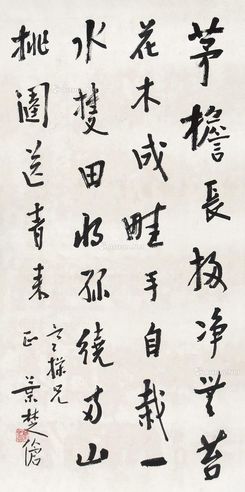 茅檐長掃净無苔
花木成畦手自栽一
水護田將綠繞兩山
排闥送青來
操兄
正 葉楚傖